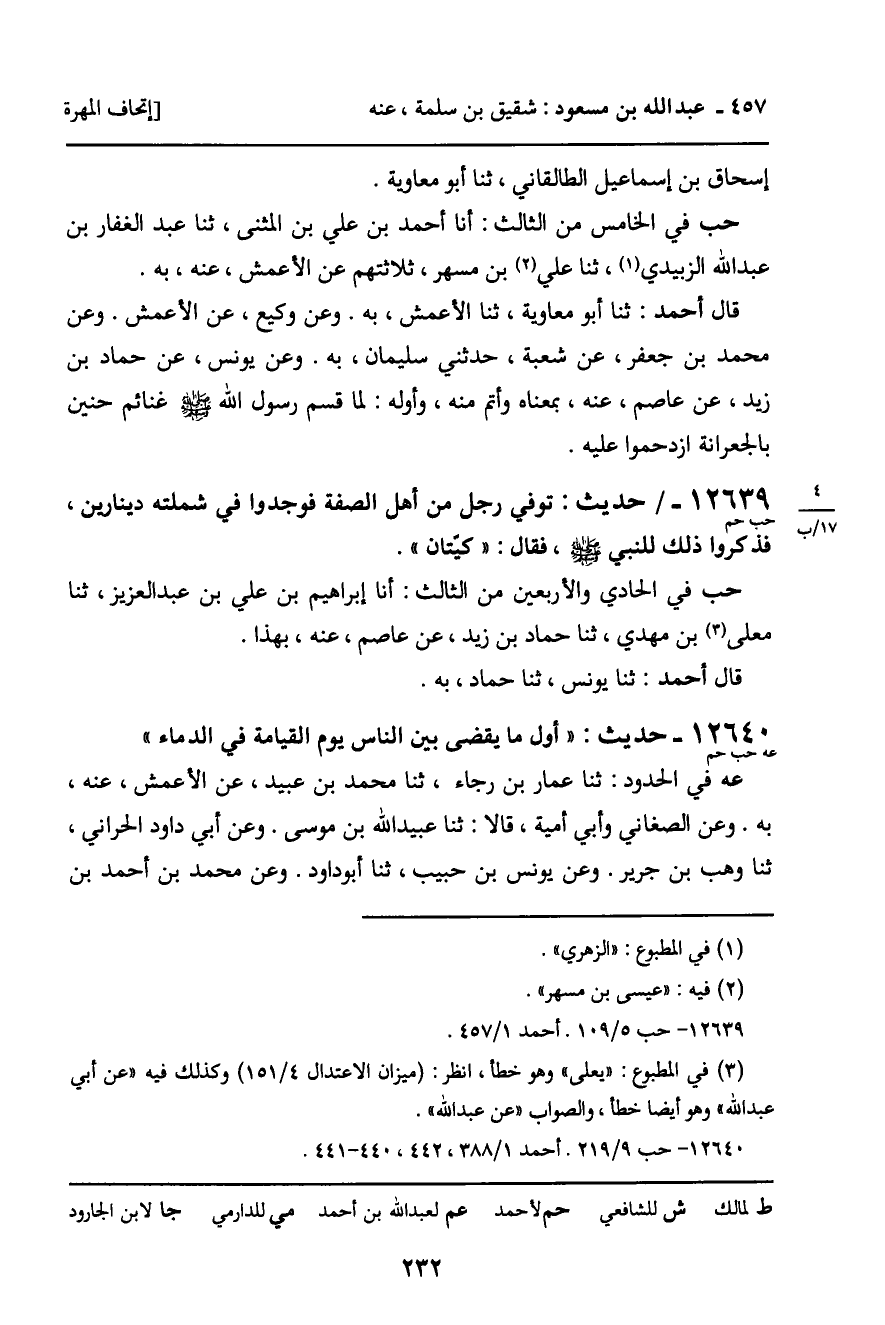 ٤٥٧ ـ عبدالله بن مسعود : شقيق بن سلمة ، عنه [إتحاف المهرة
إسحاق بن إسماعيل الطالقاني ، ثنا أبو معاوية .
حب في الخامس من الثالث : أنا أحمد بن علي بن المثنى ، ثنا عبد الغفار بن
عبدالله الزبيدي(١) ، ثنا علي(٢) بن مسهر ، ثلاثتهم عن الأعمش ، عنه ، به .
قال أحمد : ثنا أبو معاوية ، ثنا الأعمش ، به . وعن وكيع ، عن الأعمش . وعن
محمد بن جعفر ، عن شعبة ، حدثني سليمان ، به . وعن يونس ، عن حماد بن
زيد ، عن عاصم ، عنه ، بمعناه وأتم منه ، وأوله : لما قسم رسول الله ﷺ غنائم حنين
بالجعرانة ازدحموا عليه .
١٢٦٣٩ ـ / حديث : توفي رجل من أهل الصفة فوجدوا في شملته دينارين ،
٤
١٧/ب
حب حم
فذكروا ذلك للنبي ﷺ ، فقال : « كيّتان » .
حب في الحادي والأربعين من الثالث : أنا إبراهيم بن علي بن عبدالعزيز ، ثنا
معلى(٣) بن مهدي ، ثنا حماد بن زيد ، عن عاصم ، عنه ، بهذا .
قال أحمد : ثنا يونس ، ثنا حماد ، به .
١٢٦٤٠ ـ حديث : « أول ما يقضى بين الناس يوم القيامة في الدماء »
عه حب حم
عه في الحدود : ثنا عمار بن رجاء ، ثنا محمد بن عبيد ، عن الأعمش ، عنه ،
به . وعن الصغاني وأبي أمية ، قالا : ثنا عبيدالله بن موسى . وعن أبي داود الحراني ،
ثنا وهب بن جرير . وعن يونس بن حبيب ، ثنا أبوداود . وعن محمد بن أحمد بن
(١) في المطبوع : «الزهري» .
(٢) فيه : «عيسى بن مسهر» .
١٢٦٣٩– حب ١٠٩/٥ . أحمد ٤٥٧/١ .
(٣) في المطبوع : «يعلى» وهو خطأ ، انظر : (ميزان الاعتدال ١٥١/٤) وكذلك فيه «عن أبي
عبدالله» وهو أيضا خطأ ، والصواب «عن عبدالله» .
١٢٦٤٠– حب ٢١٩/٩ . أحمد ٣٨٨/١ ، ٤٤٢ ، ٤٤٠–٤٤١ .
ط لمالك ش للشافعي حم لأحمد عم لعبدالله بن أحمد مي للدارمي جا لابن الجارود
٢٣٢